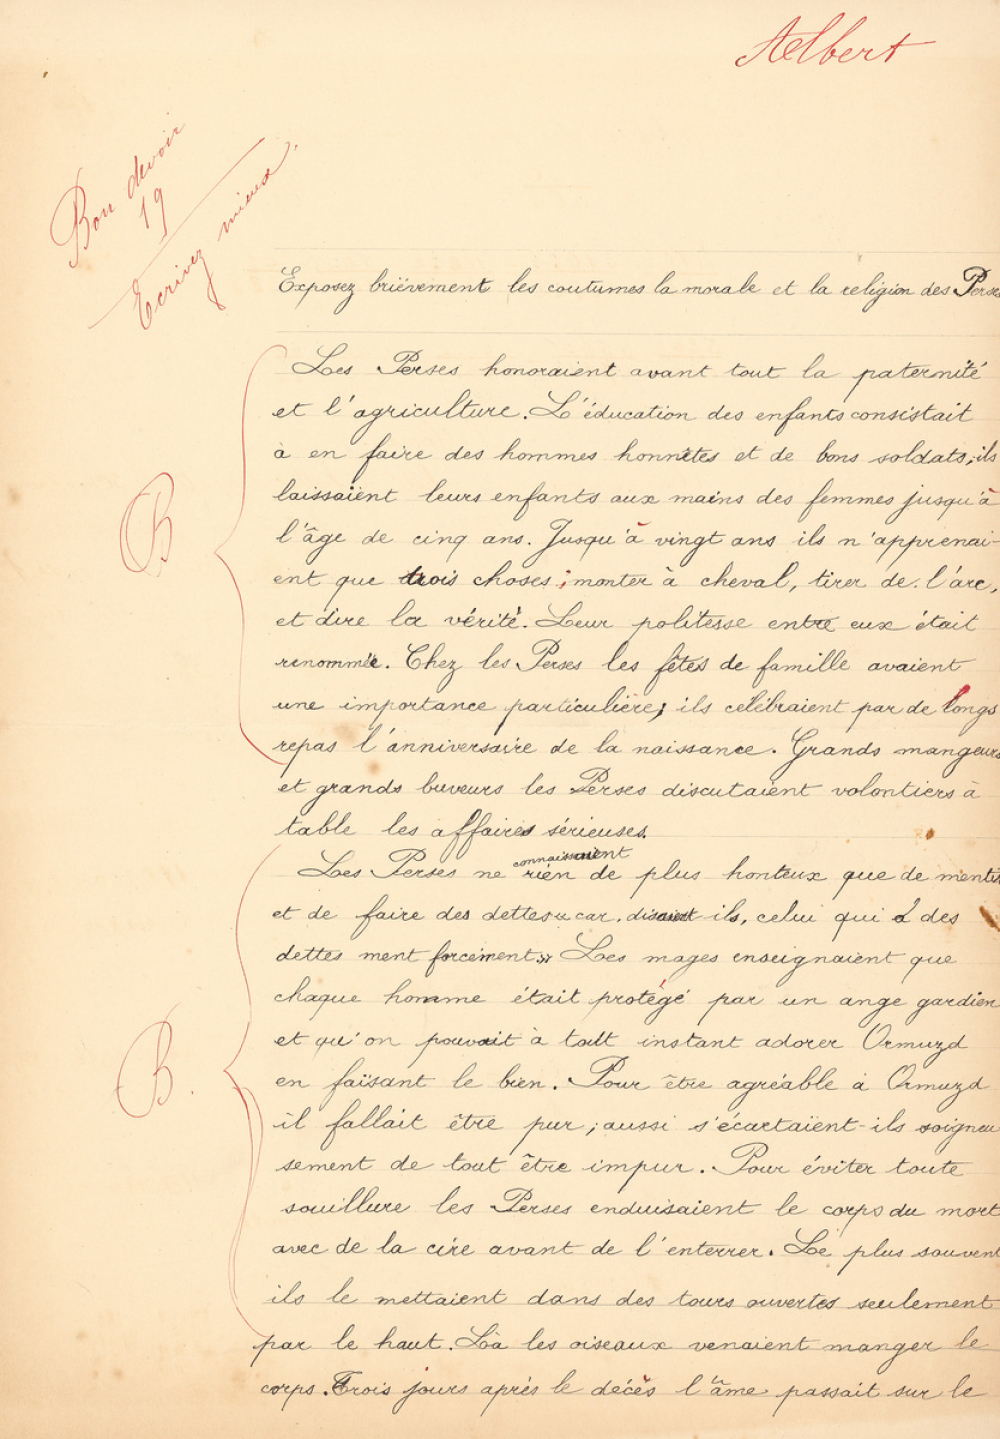 Albert
Bon devoir
19
Ecrivez mieux.
Exposez brièvement les coutumes la morale et la religion des Perses
Les Perses honoraient avant tout la paternité
et l'agriculture. L'éducation des enfants consistait
à en faire des hommes honnêtes et de bons soldats; ils
laissaient leurs enfants aux mains des femmes jusqu'à
l'âge de cinq ans. Jusqu'à vingt ans ils n'apprenai-
ent que trois choses: monter à cheval, tirer de l'arc,
B
et dire la vérité. Leur politesse entre eux était
renommée. Chez les Perses les fêtes de famille avaient
une importance particulière; ils célébraient par de longs
repas l'anniversaire de la naissance. Grands mangeurs
et grands buveurs les Perses discutaient volontiers à
table les affaires sérieuses.
connaissaient
Les Perses ne rien de plus honteux que de mentir
et de faire des dettes « car, disaient-ils, celui qui a des
dettes ment forcément». Les mages enseignaient que
chaque homme était protégé par un ange gardien
et qu'on pouvait à tout instant adorer Ormuzd
B.
en faisant le bien. Pour être agréable à Ormuzd
il fallait être pur; aussi s'écartaient-ils soigneu
sement de tout être impur. Pour éviter toute
souillure les Perses enduisaient le corps du mort
avec de la cire avant de l'enterrer. Le plus souvent
ils le mettaient dans des tours ouvertes seulement
par le haut. Là les oiseaux venaient manger le
corps. Trois jours après le décès l'âme passait sur le